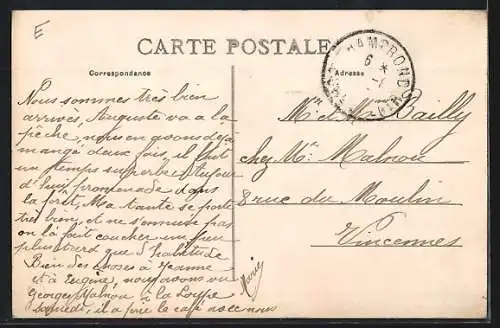 E
CARTE POSTALE
Correspondance
Adresse
CHAMPROND
6 *
Nous sommes très bien
arrivés, Auguste va a la
pêche, nous en avons déjà
mangé deux fois, il fait
un temps superbe aujour
d'hui promenade dans
la forêt, Ma tante se porte
très bien, et ne s'ennuie pas
on la fait coucher un peu
plus tard que d'habitude
Bien des choses à Jeanne
et à Eugène, nous avons vu
Georges Malnou à la Loupe
samedi, il a pris le café avec nous
Marie
Mr et Mme Bailly
chez Mr Malnou
8 rue du Moulin
Vincennes